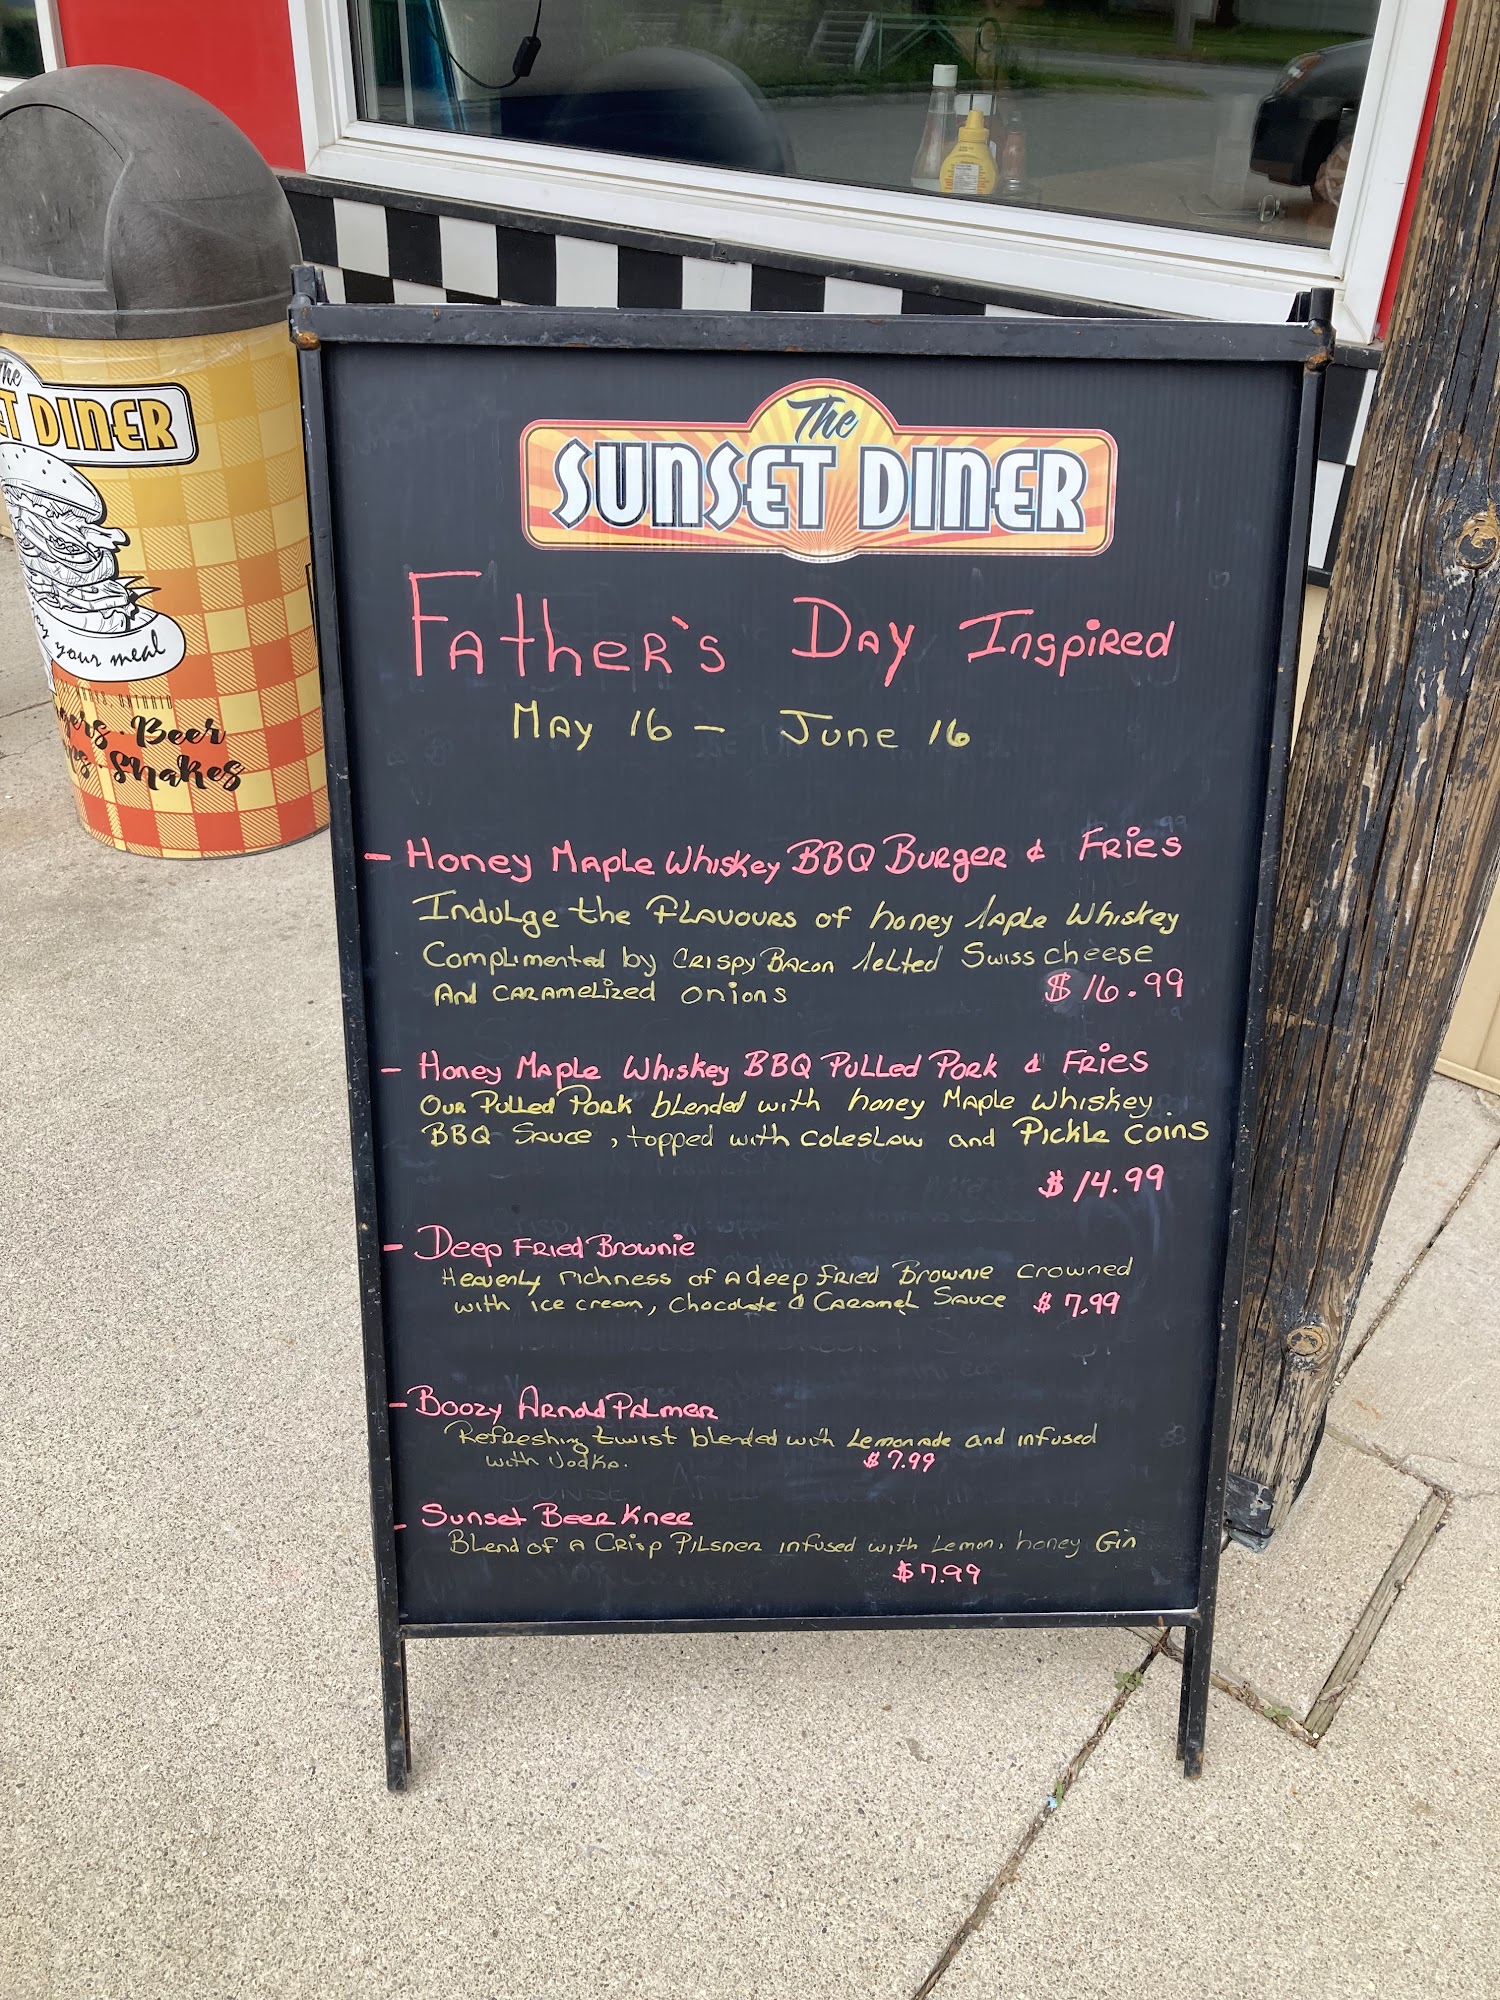 The
SUNSET DINER
Father's Day Inspired
May 16 - June 16
- Honey Maple Whiskey BBQ Burger & Fries
Indulge the Flavours of honey Maple Whiskey
Complimented by Crispy Bacon Melted Swiss cheese
And caramelized onions $16.99
- Honey Maple Whiskey BBQ Pulled Pork & Fries
Our Pulled Pork blended with honey Maple Whiskey
BBQ Sauce, topped with coleslaw and Pickle coins
$14.99
- Deep Fried Brownie
Heavenly richness of a deep fried Brownie crowned
with ice cream, Chocolate & Caramel Sauce $7.99
- Boozy Arnold Palmer
Refreshing twist blended with Lemonade and infused
with Vodka. $7.99
- Sunset Beer Knee
Blend of a Crisp Pilsner infused with Lemon, honey Gin
$7.99
The
ET DINER
your meal
ONTARIO
Beer
Shakes